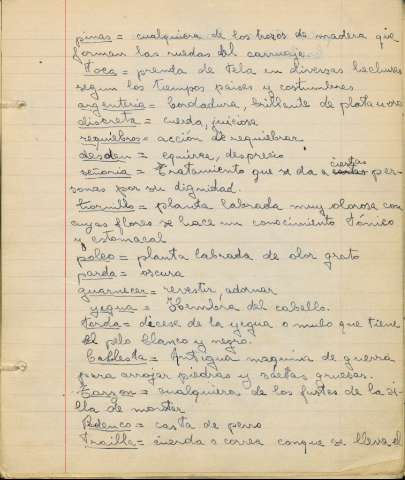 pinas = cualquiera de los trozos de madera que
forman las ruedas del carruaje.
Toca = prenda de tela en diversas hechuras
segun los tiempos paises y costumbres
argenteria = bordadura, brillante de plata u oro
discreta = cuerda, juiciosa
requiebros = acción de requiebrar
desden = equivez, desprecio
señoria = tratamiento que se da a ciertas per-
sonas por su dignidad.
tomillo = planta labrada muy olorosa con
cuyas flores se hace un conocimiento tónico
y estomacal
poleo = planta labrada de olor grato
parda = oscura
guarnecer = revestir, adornar
yegua = Hembra del caballo.
Torda = dícese de la yegua o mulo que tiene
el pelo blanco y negro.
Ballesta = Antigua maquina de guerra
para arrojar piedras y saetas gruesas.
Farzon = cualquiera de los fustes de la si-
lla de montar
Podenco = casta de perro
Trailla = cuerda o correa conque se lleva el